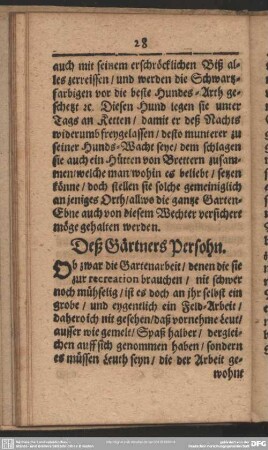 28
auch mit seinem erschröcklichen Biß al-
les zerreissen / und werden die Schwartz-
farbigen vor die beste Hundes-Arth ge-
schetzt ꝛc. Diesen Hund legen sie unter
Tags an Ketten / damit er deß Nachts
widerumb freygelassen / desto munterer zu
seiner Hunds-Wacht seye / dem schlagen
sie auch ein Hütten von Brettern zusam-
men / welche man / wohin es beliebt / setzen
könne / doch stellen sie solche gemeiniglich
an jeniges Orth / allwo die gantze Garten-
Ebne auch von diesem Wechter versichert
möge gehalten werden.
Deß Gärtners Persohn.
Ob zwar die Gartenarbeit / denen die sie
zur recreation brauchen / nit schwer
noch mühselig / ist es doch an ihr selbst ein
grobe / und eygentlich ein Feld-Arbeit /
dahero ich nit gesehen / daß vornehme Leut /
ausser wie gemelt / Spaß halber / derglei-
chen auff sich genommen haben / sondern
es müssen Leuth seyn / die der Arbeit ge-
wohnt